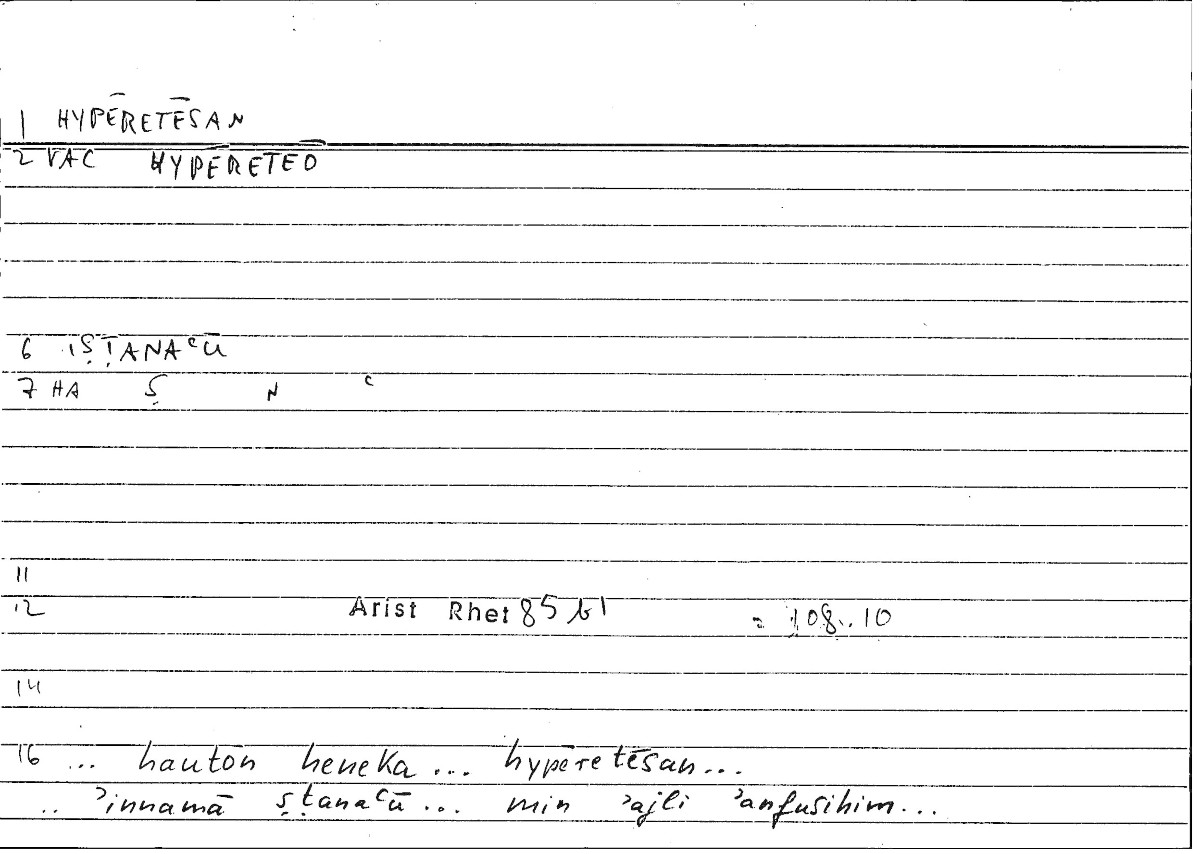 1 HYPĒRETĒSAN
2 VAC HYPĒRETEŌ
6 iṢṬANAʿŪ
7 HA Ṣ N ʿ
11
12 Arist Rhet 85 b1 = 108.. 10
14
16 ... hautōn heneka ... hypēretēsan ...
.. ʾinnamā ṣṭanaʿū ... min ʾajli ʾanfusihim ...